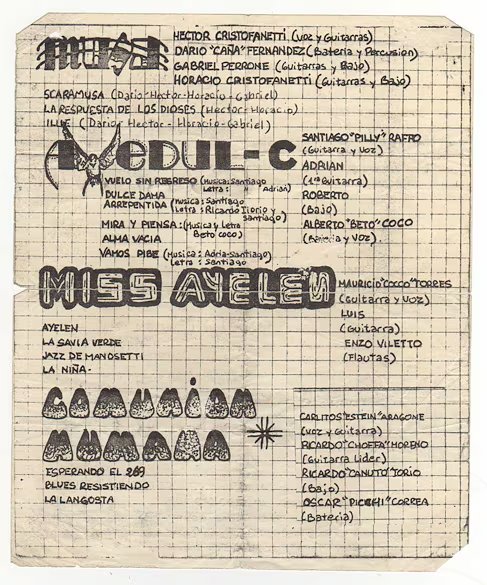 MUSA
HECTOR CRISTOFANETTI (VOZ y Guitarras)
DARIO "CAÑA" FERNANDEZ (Bateria y Percusion)
GABRIEL PERRONE (Guitarras y Bajo)
HORACIO CRISTOFANETTI (Guitarras y Bajo)
SCARAMUSA (Dario-Hector-Horacio-Gabriel)
LA RESPUESTA DE LOS DIOSES (Hector-Horacio)
(Dario-Hector-Horacio-Gabriel)
EDUL-C
VUELO SIN REGRESO (Musica: Santiago
Letra: Adrian)
DULCE DAMA
ARREPENTIDA (musica: Santiago
Letra: Ricardo Iiorio y
Santiago)
MIRA Y PIENSA: (Musica y Letra
Beto coco)
ALMA VACIA
VAMOS PIBE (Musica: Adria-Santiago)
Letra: Santiago
SANTIAGO "PILLY" RAFFO
(Guitarra y Voz)
ADRIAN
(1ª Guitarra)
ROBERTO
(Bajo)
ALBERTO "BETO" COCO
(Bateria y VOZ).
MISS AYELEN
MAURICIO "COCCO" TORRES
(Guitarra y VOZ)
LUIS
(Guitarra)
ENZO VILETTO
(Flautas)
AYELEN
LA SAVIA VERDE
JAZZ DE MANOSETTI
LA NIÑA-
COMUNION
HUMANA
CARLITOS "ESTEIN" ARAGONE
(VOZ y guitarra)
RICARDO "CHOFFA" MORENO
(Guitarra Lider)
RICARDO "CANUTO" TORIO
(Bajo)
OSCAR "PICCHI" CORREA
(Bateria)
ESPERANDO EL 269
BLUES RESISTIENDO
LA LANGOSTA